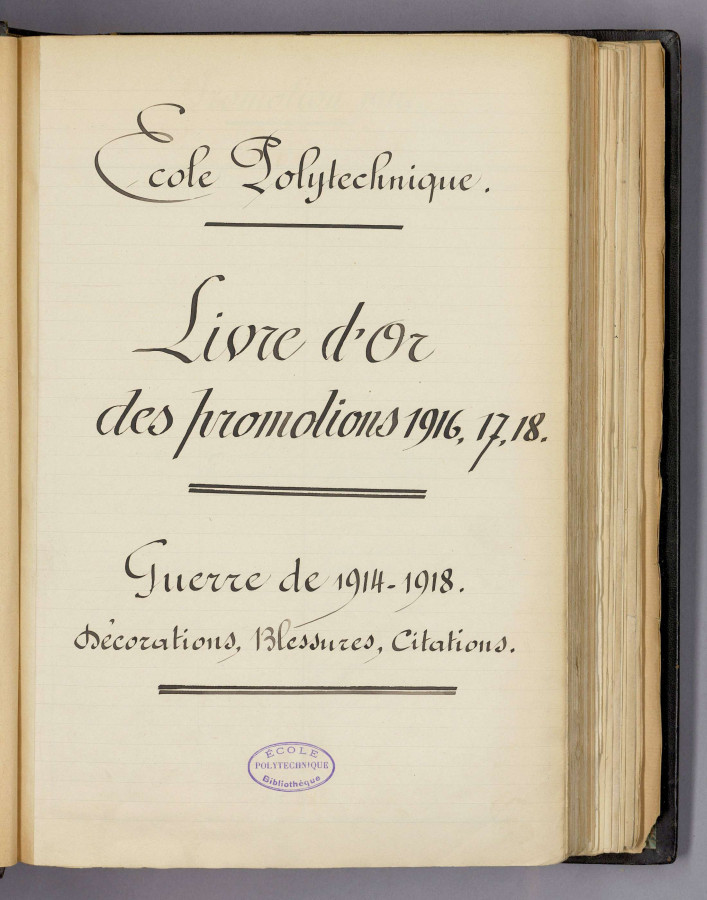 Ecole Polytechnique.
Livre d'Or
des promotions 1916, 17, 18.
Guerre de 1914-1918.
Décorations, Blessures, Citations.
ÉCOLE
POLYTECHNIQUE
Bibliothèque